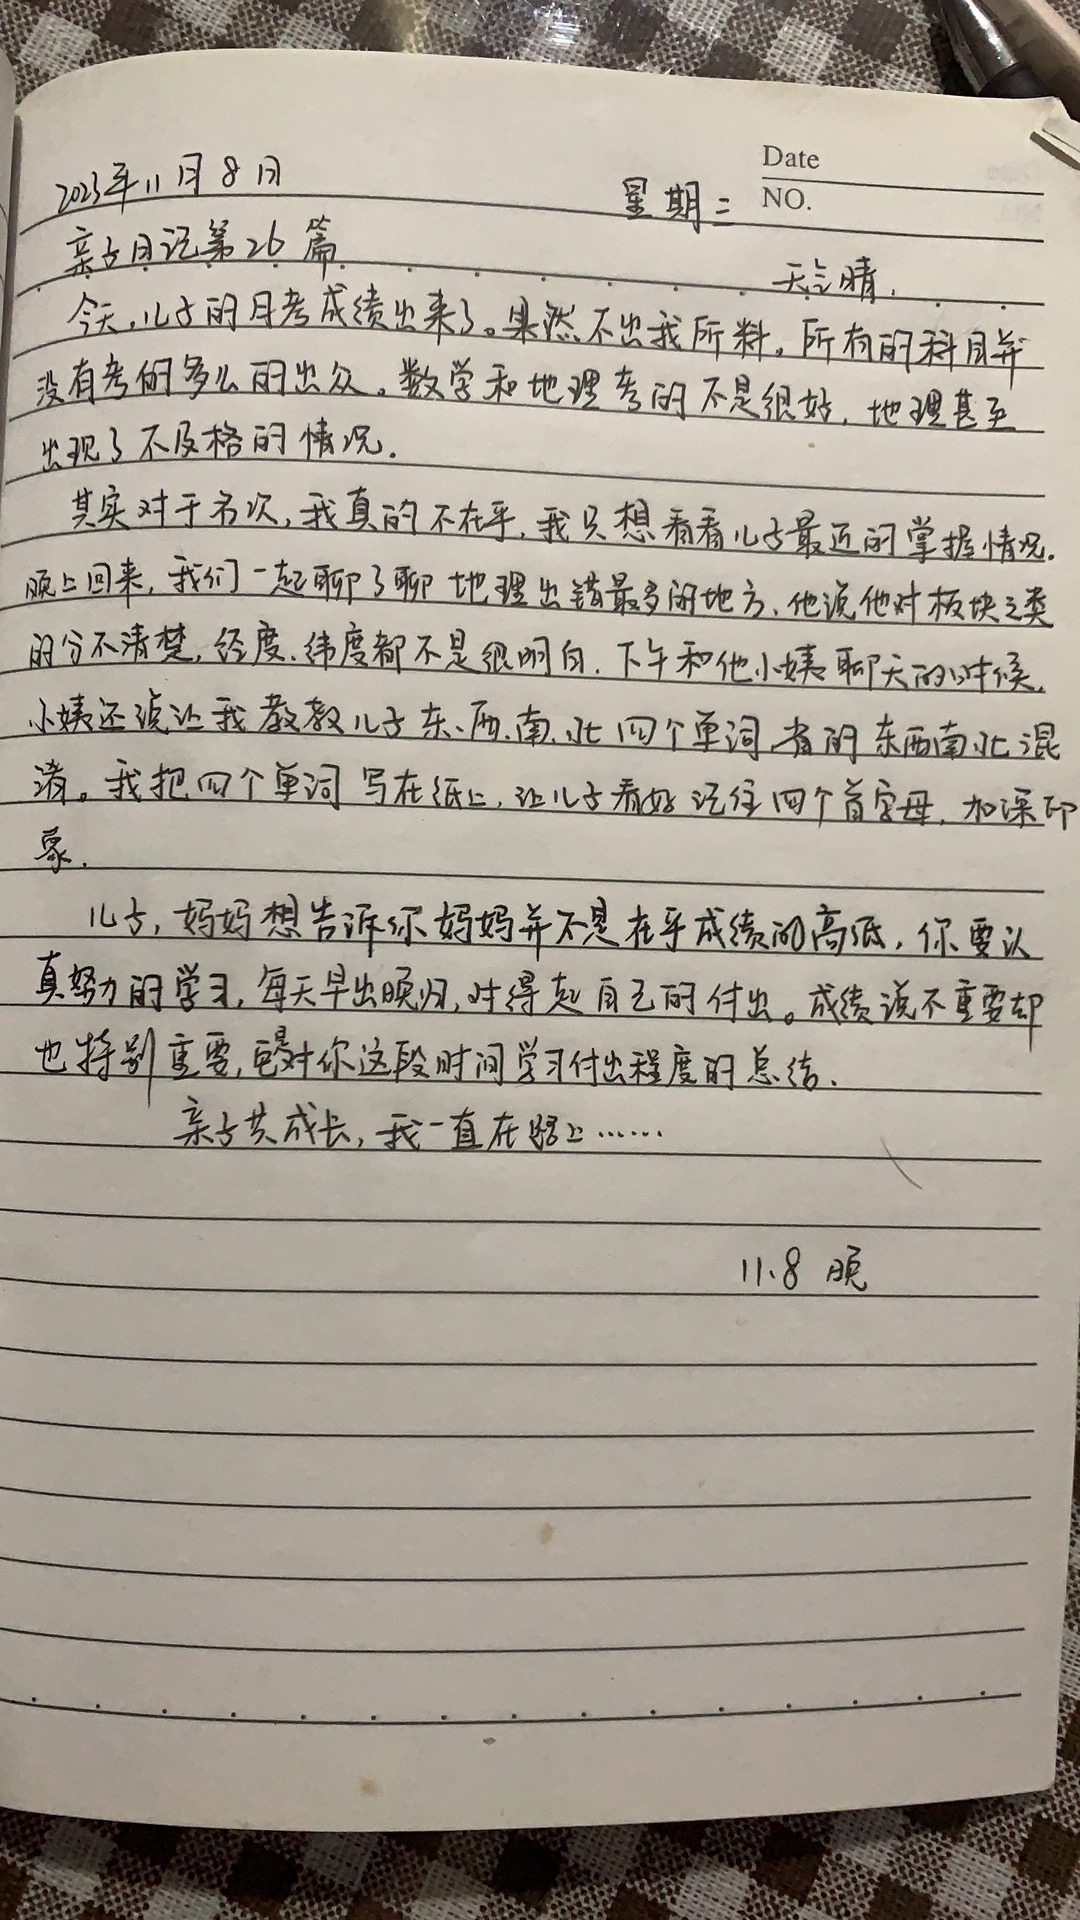 Date
2023年11月8日 星期二 NO.
亲子日记第26篇 天气晴.
今天,儿子的月考成绩出来了。果然不出我所料。所有的科目并
没有考的多么的出众。数学和地理考的不是很好,地理甚至
出现了不及格的情况.
其实对于名次,我真的不在乎,我只想看看儿子最近的掌握情况.
晚上回来,我们一起聊了聊地理出错最多的地方,他说他对板块之类
的分不清楚,经度、纬度都不是很明白.下午和他小姨聊天的时候,
小姨还说让我教教儿子东、西、南、北四个单词,省的东西南北混
淆。我把四个单词写在纸上,让儿子看好记住四个首字母,加深印
象.
儿子,妈妈想告诉你妈妈并不是在乎成绩的高低,你要认
真努力的学习,每天早出晚归,对得起自己的付出。成绩说不重要却
也特别重要,它是对你这段时间学习付出程度的总结.
亲子共成长,我一直在路上……
11.8 晚